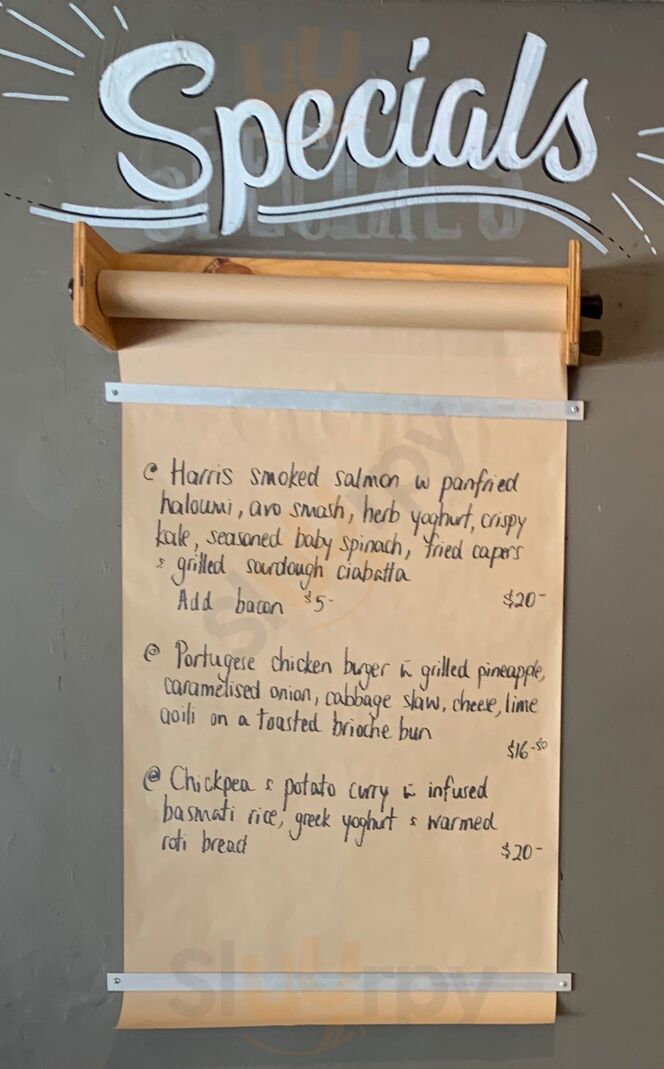 Specials
@ Harris smoked salmon w panfried
haloumi, avo smash, herb yoghurt, crispy
kale, seasoned baby spinach, fried capers
& grilled sourdough ciabatta
Add bacon $5-
$20-
@ Portugese chicken burger w grilled pineapple,
caramelised onion, cabbage slaw, cheese, lime
aoili on a toasted brioche bun
$16-50
@ Chickpea & potato curry w infused
basmati rice, greek yoghurt & warmed
roti bread
$20-
Sluurpy
Sluurpy